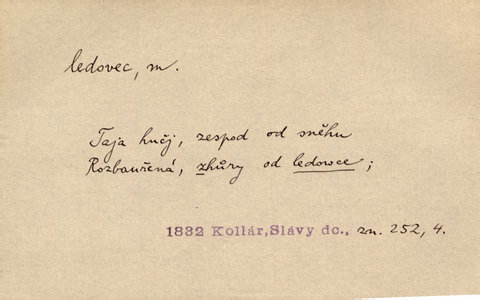 ledovec, m.
Taja hučj, zespod od sněhu
Rozbauřená, zhůry od ledowce;
1832 Kollár, Slávy dc., zn. 252, 4.